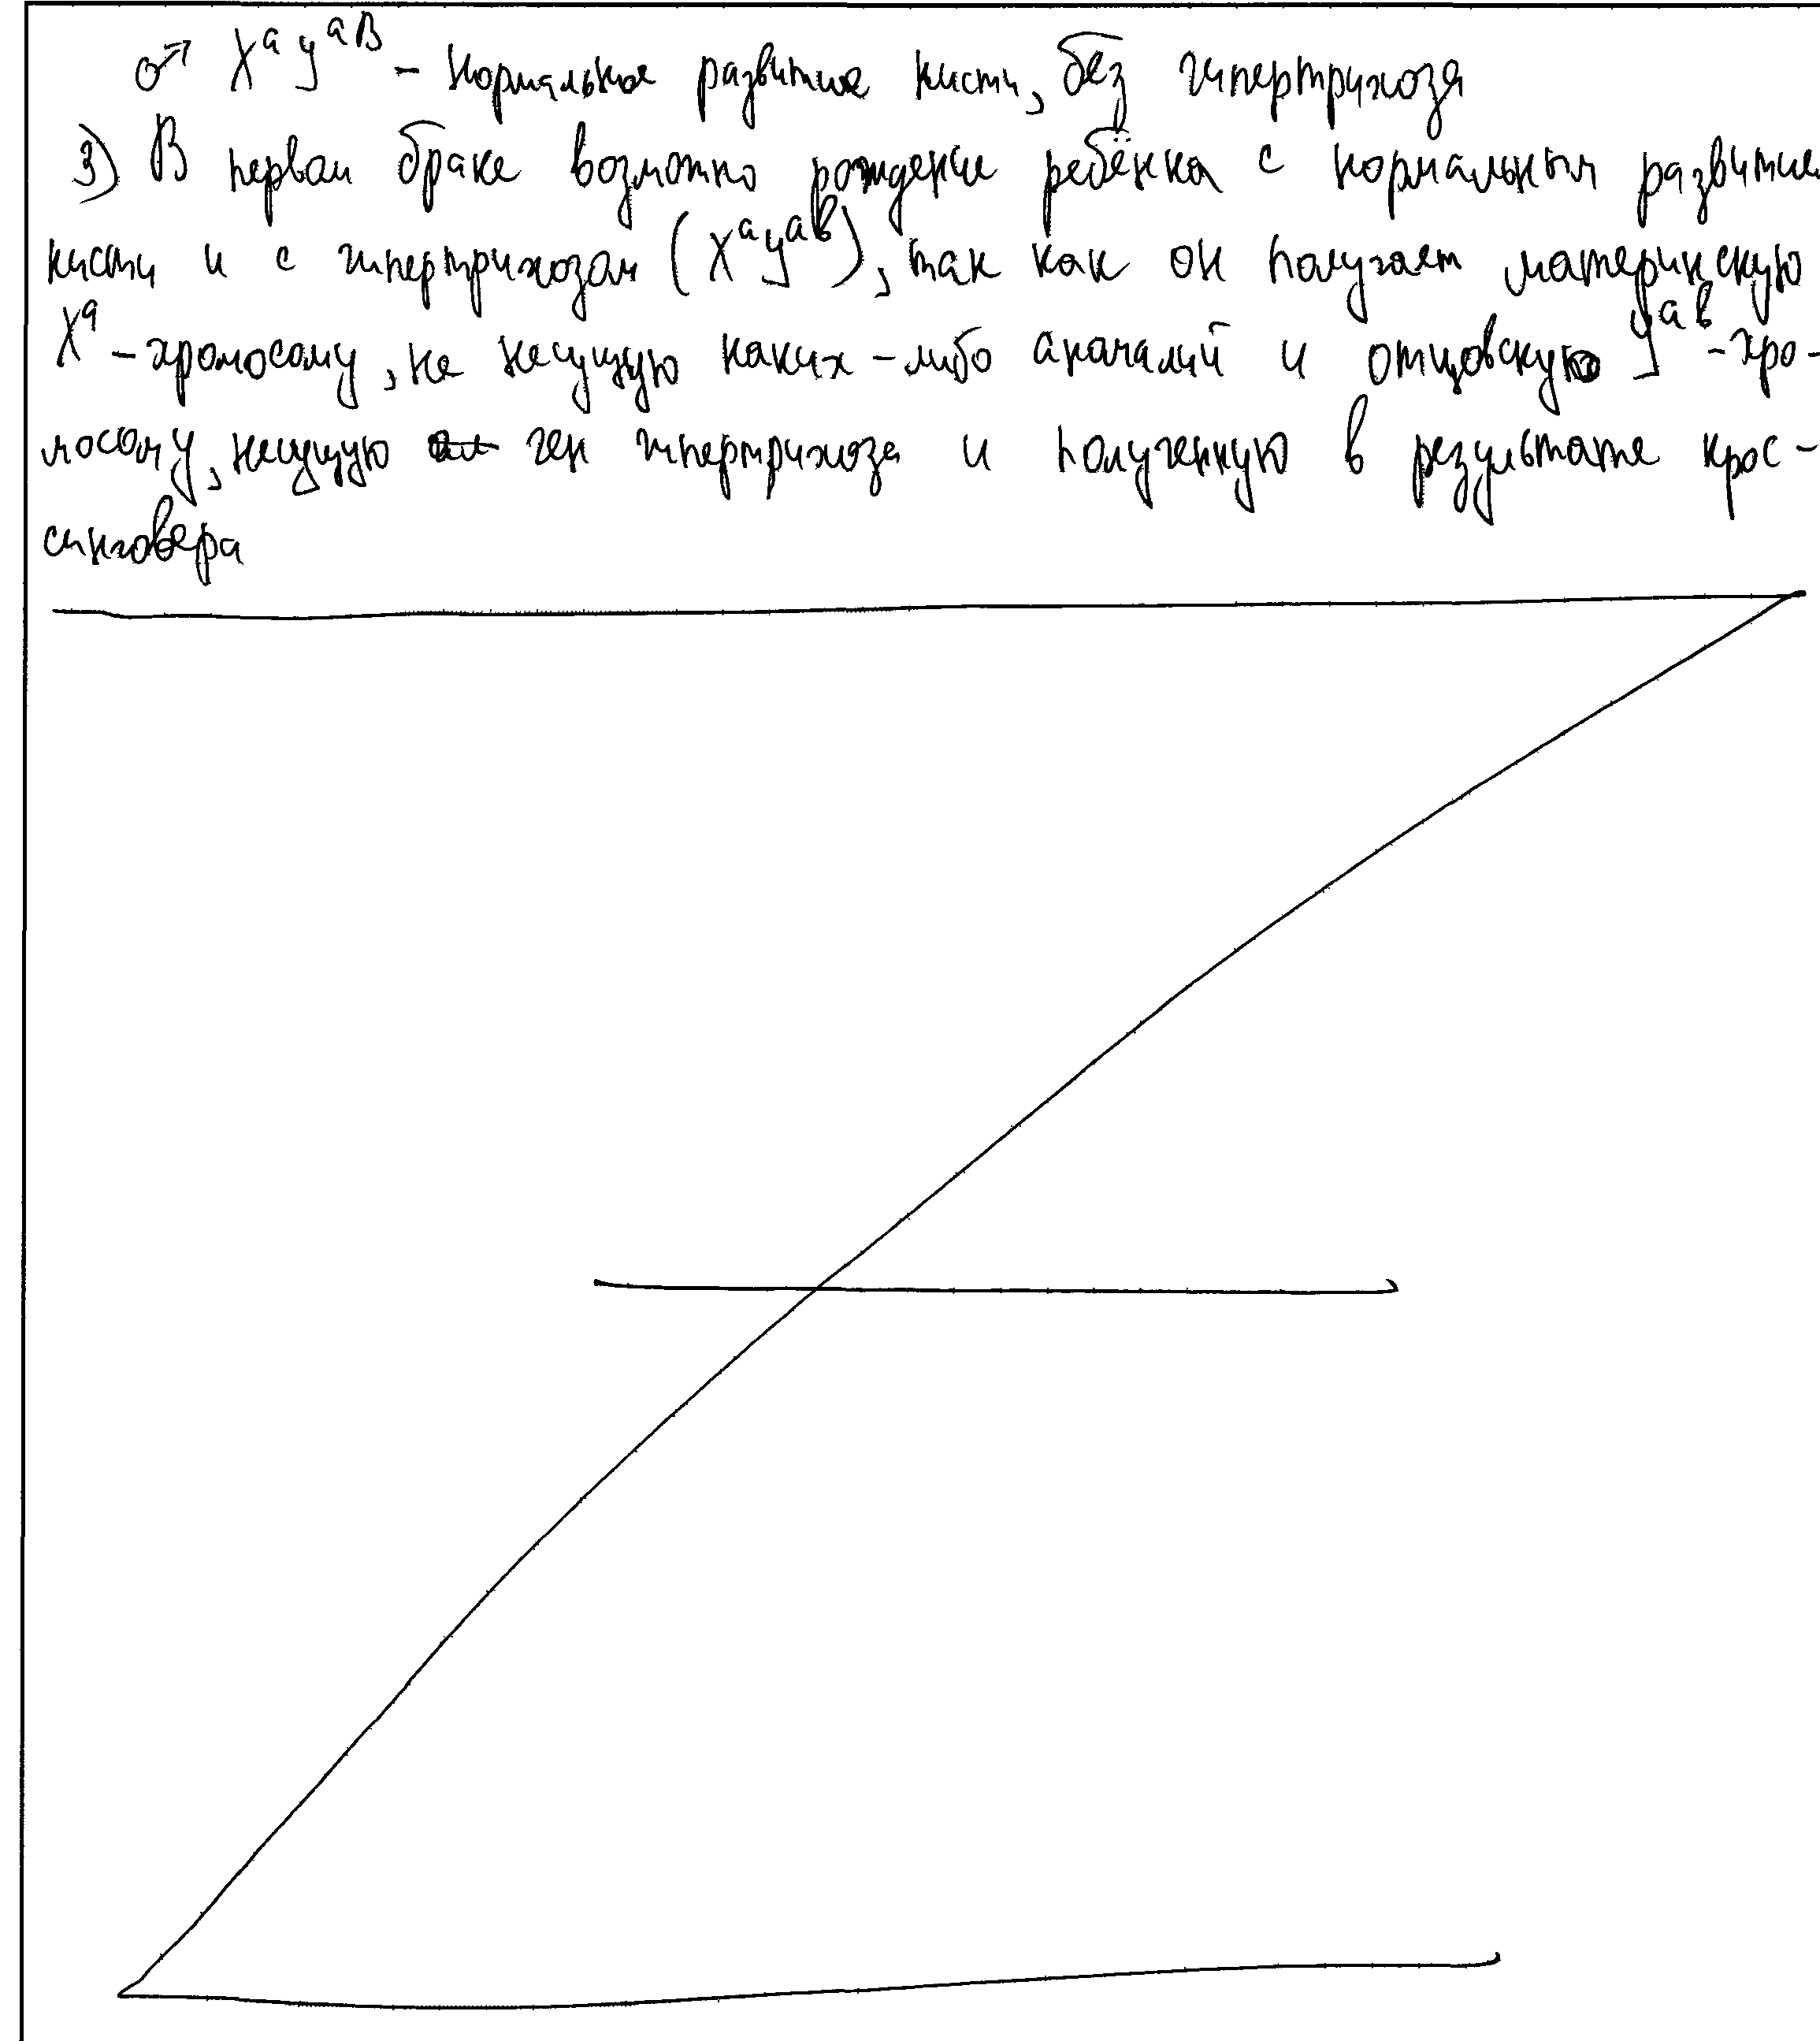 ♂ XᵃYᵃᴮ – нормальное развитие кисти, без гипертрихоза
3) В первом браке возможно рождение ребёнка с нормальным развитием
кисти и с гипертрихозом (XᵃYᵃᵇ), так как он получает материнскую
Xᵃ – хромосому, не несущую каких-либо аномалий и отцовскую Yᵃᵇ – хро-
мосому, несущую ген гипертрихоза и полученную в результате крос-
синговера